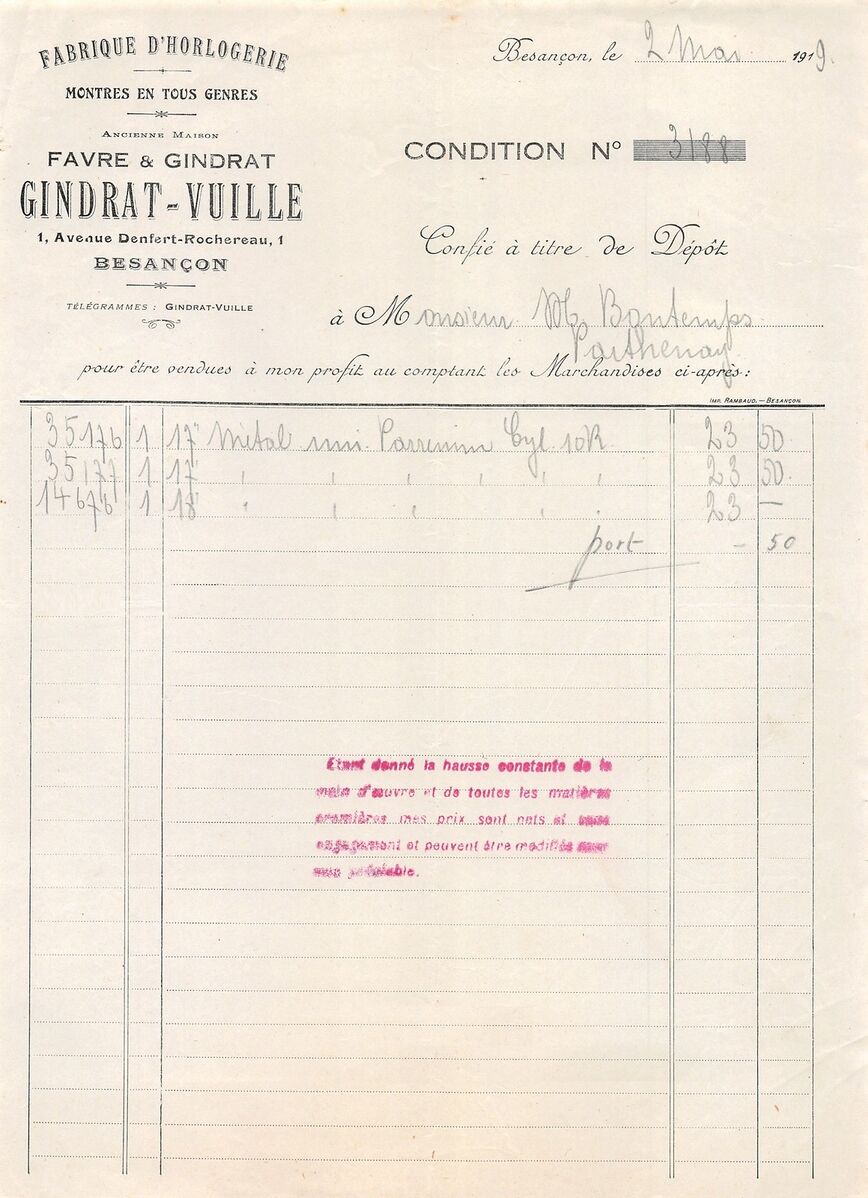 FABRIQUE D'HORLOGERIE
MONTRES EN TOUS GENRES
ANCIENNE MAISON
FAVRE & GINDRAT
GINDRAT-VUILLE
1, Avenue Denfert-Rochereau, 1
BESANÇON
TÉLÉGRAMMES : GINDRAT-VUILLE
Besançon, le 2 Mai 1919.
CONDITION N° 3188
Confié à titre de Dépôt
à Monsieur M. Bontemps
Parthenay
pour être vendues à mon profit au comptant les Marchandises ci-après :
IMP. RAMBAUD. — BESANÇON
35176 1 17" Métal uni Parrenin Cyl. 10R 23 50
35177 1 17" " " " " " 23 50.
14676 1 18" " " " " " 23 —
port - 50
Etant donné la hausse constante de la
main d'œuvre et de toutes les matières
premières mes prix sont nets et sans
engagement et peuvent être modifiés sans
avis préalable.